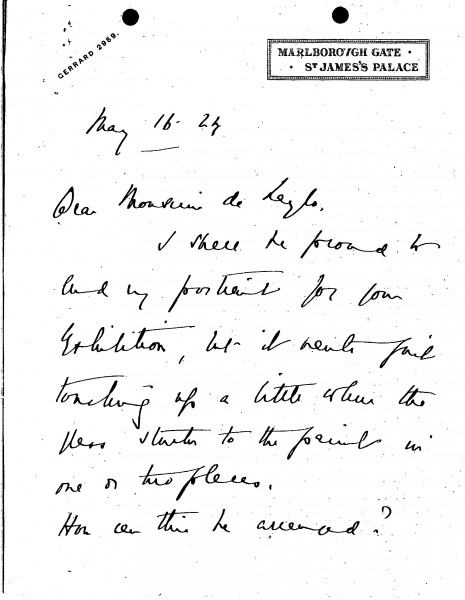 GERRARD 2959.
MARLBOROUGH GATE ·
· ST JAMES'S PALACE
May 16. 24
Dear Monsieur de Laszlo.
I shall be proud to
lend my portrait for your
Exhibition, but it wants just
touching up a little where the
glass sticks to the paint in
one or two places.
How can this be arranged?